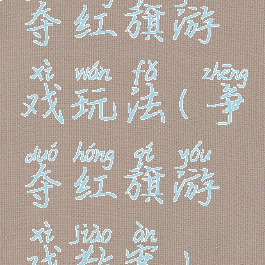 夺红旗游
xì wán fǎ zhēng
戏玩法(争
duó hóng qí yóu
夺红旗游
xì jiào àn
戏教案)